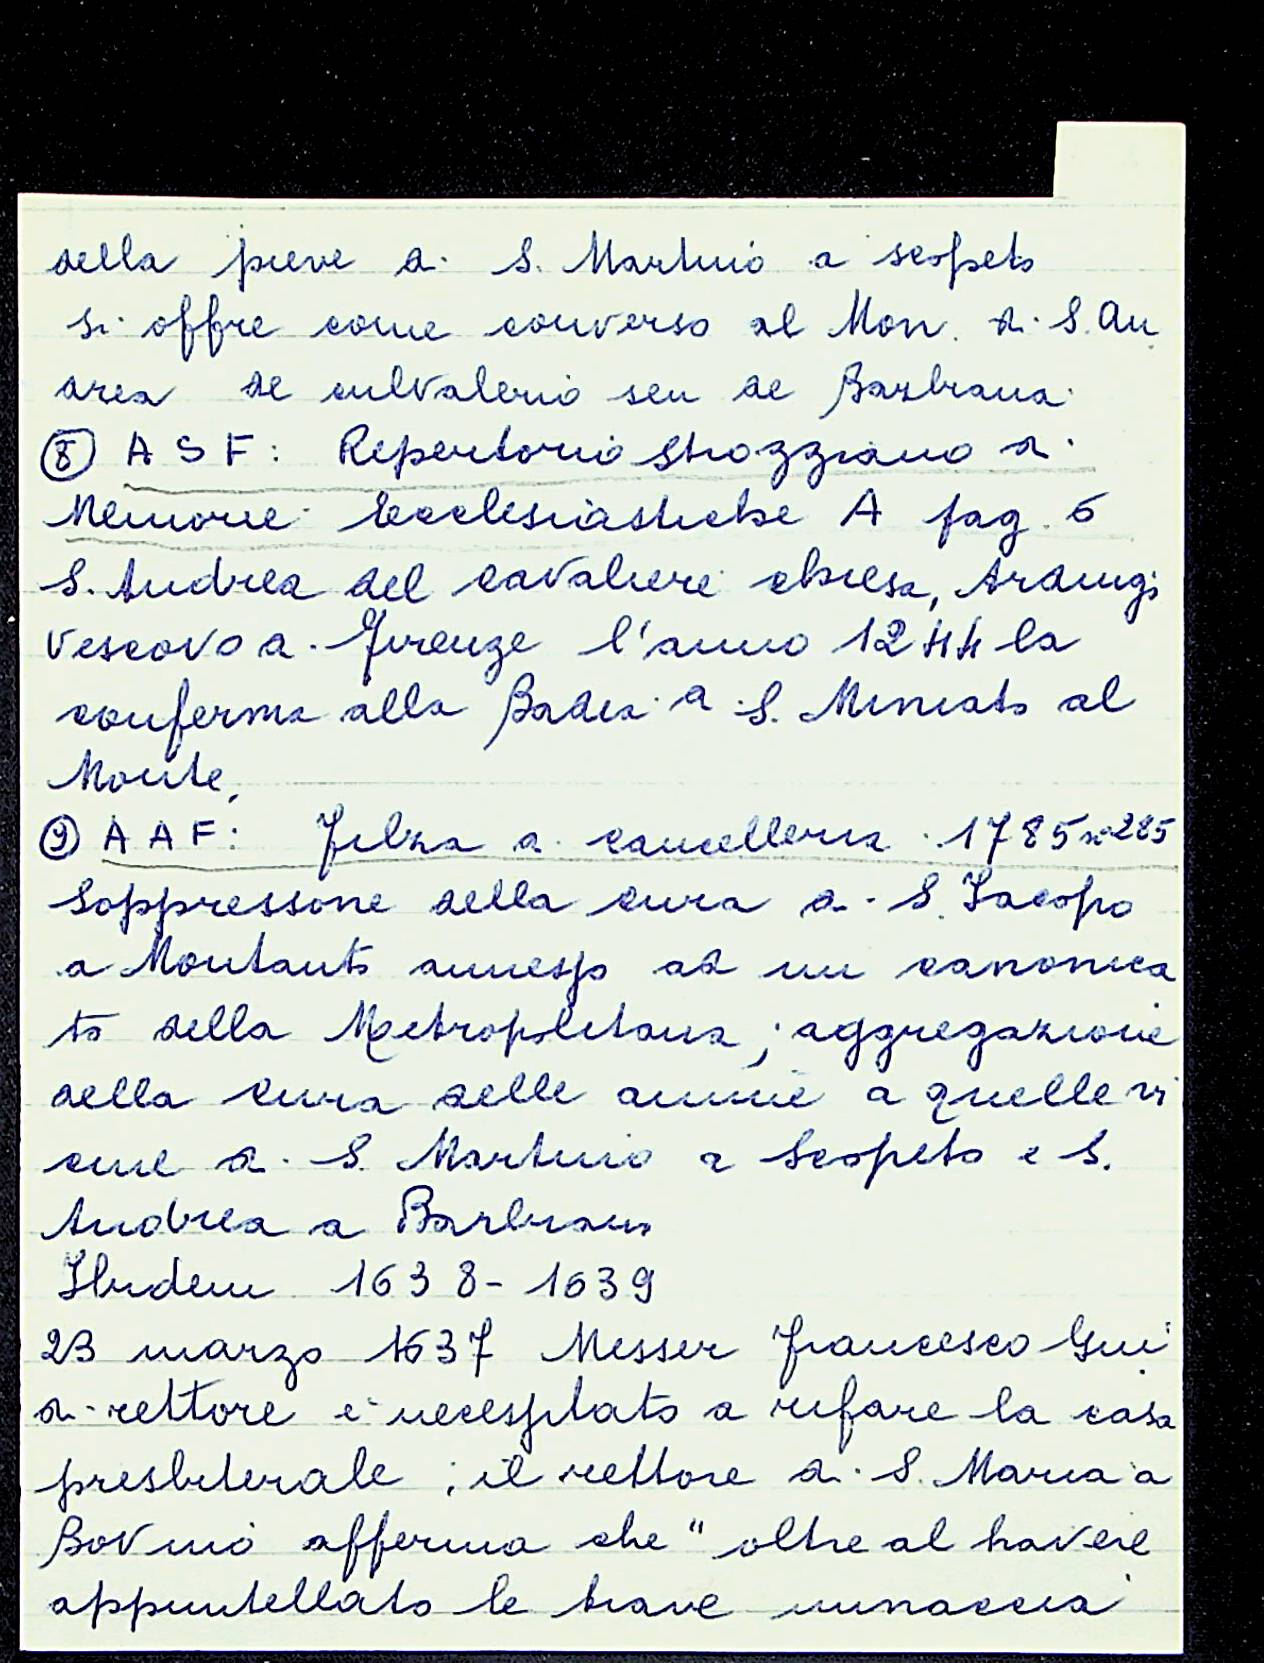 della pieve di S. Martino a scopeto
si offre come converso al Mon. di S. An
drea de culvalerio seu de Barbiana
⑧ A S F: Repertorio Strozziano di
Memorie Ecclesiastiche A pag. 6
S. Andrea del cavaliere chiesa, Ardingi
vescovo di Firenze l'anno 1244 la
conferma alla Badia di S. Miniato al
Monte,
⑨ A A F: Filza di cancelleria 1785 n° 285
Soppressione della cura di S. Iacopo
a Montauto annesso ad un canonica
to della Metropolitana; aggregazione
della cura delle anime a quelle vi
cine di S. Martino a Scopeto e S.
Andrea a Barbiana
Ibidem 1638-1639
23 marzo 1637 Messer Francesco Gui
di rettore è necessitato a rifare la casa
presbiterale; il rettore di S. Maria a
Bovino afferma che "oltre al havere
appuntellato le trave minaccia